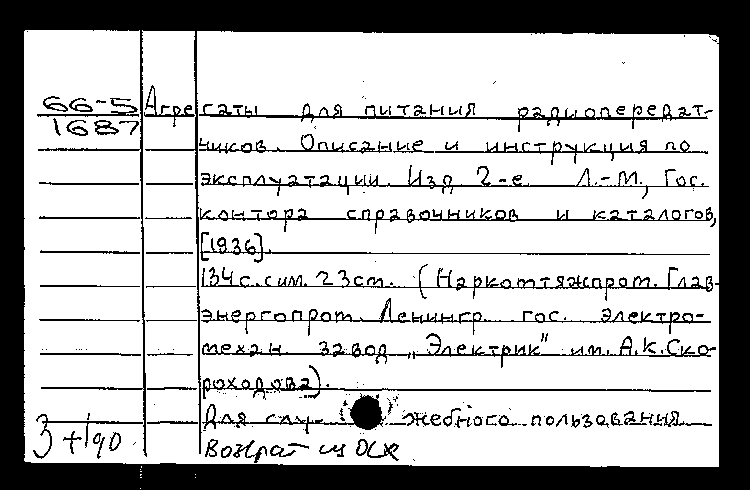 66-5 Агрегаты для питания радиопередат-
1687
чиков. Описание и инструкция по
эксплуатации. Изд. 2-е. Л.-М., Гос.
контора справочников и каталогов,
[1936].
134 с. с илл. 23 см. (Наркомтяжпром. Глав-
энергопром. Ленингр. гос. электро-
механ. завод „Электрик" им. А.К. Ско-
роходова).
Для слу- жебного пользования
Возврат из ОСХ